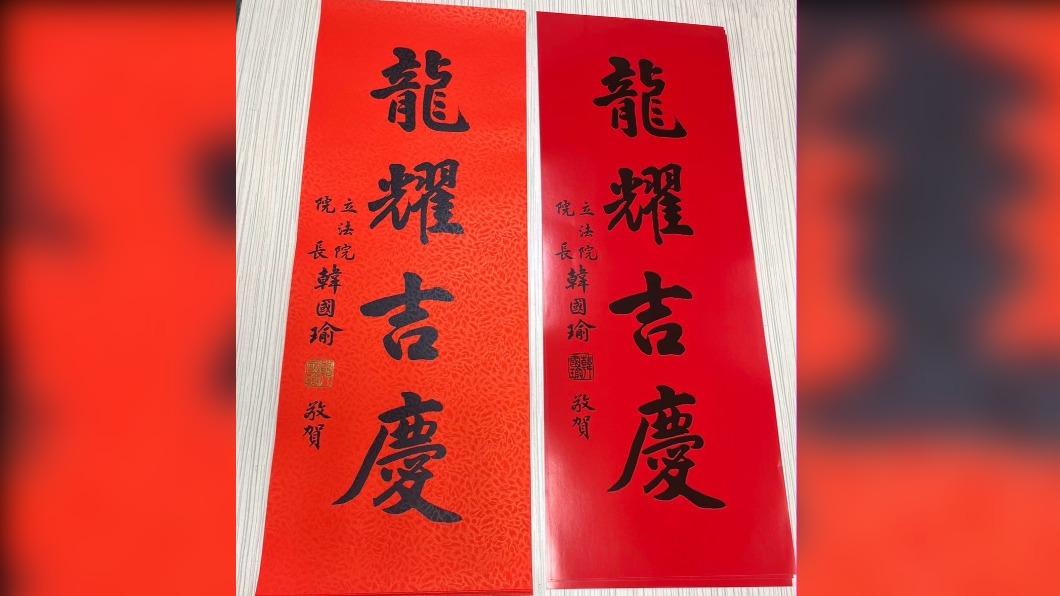 龍耀吉慶
立法院
院長韓國瑜
敬賀
龍耀吉慶
立法院
院長韓國瑜
敬賀